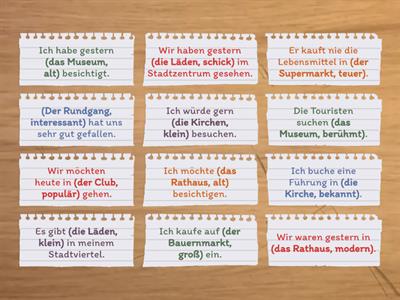 Ich habe gestern
(das Museum,
alt) besichtigt.
Wir haben gestern
(die Läden, schick) im
Stadtzentrum gesehen.
Er kauft nie die
Lebensmittel in (der
Supermarkt, teuer).
(Der Rundgang,
interessant) hat uns
sehr gut gefallen.
Ich würde gern
(die Kirchen,
klein) besuchen.
Die Touristen
suchen (das
Museum, berühmt).
Wir möchten
heute in (der Club,
populär) gehen.
Ich möchte (das
Rathaus, alt)
besichtigen.
Ich buche eine
Führung in (die
Kirche, bekannt).
Es gibt (die Läden,
klein) in meinem
Stadtviertel.
Ich kaufe auf (der
Bauernmarkt,
groß) ein.
Wir waren gestern in
(das Rathaus, modern).